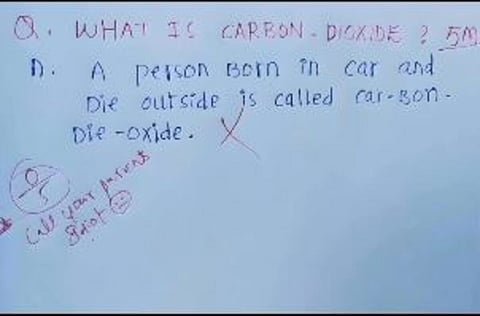 Q. WHAT IS CARBON-DIOXIDE ? 5M
A. A person Born in car and
Die outside is called car-Bon-
Die-oxide. X
0/5
Call your parent
Idiot